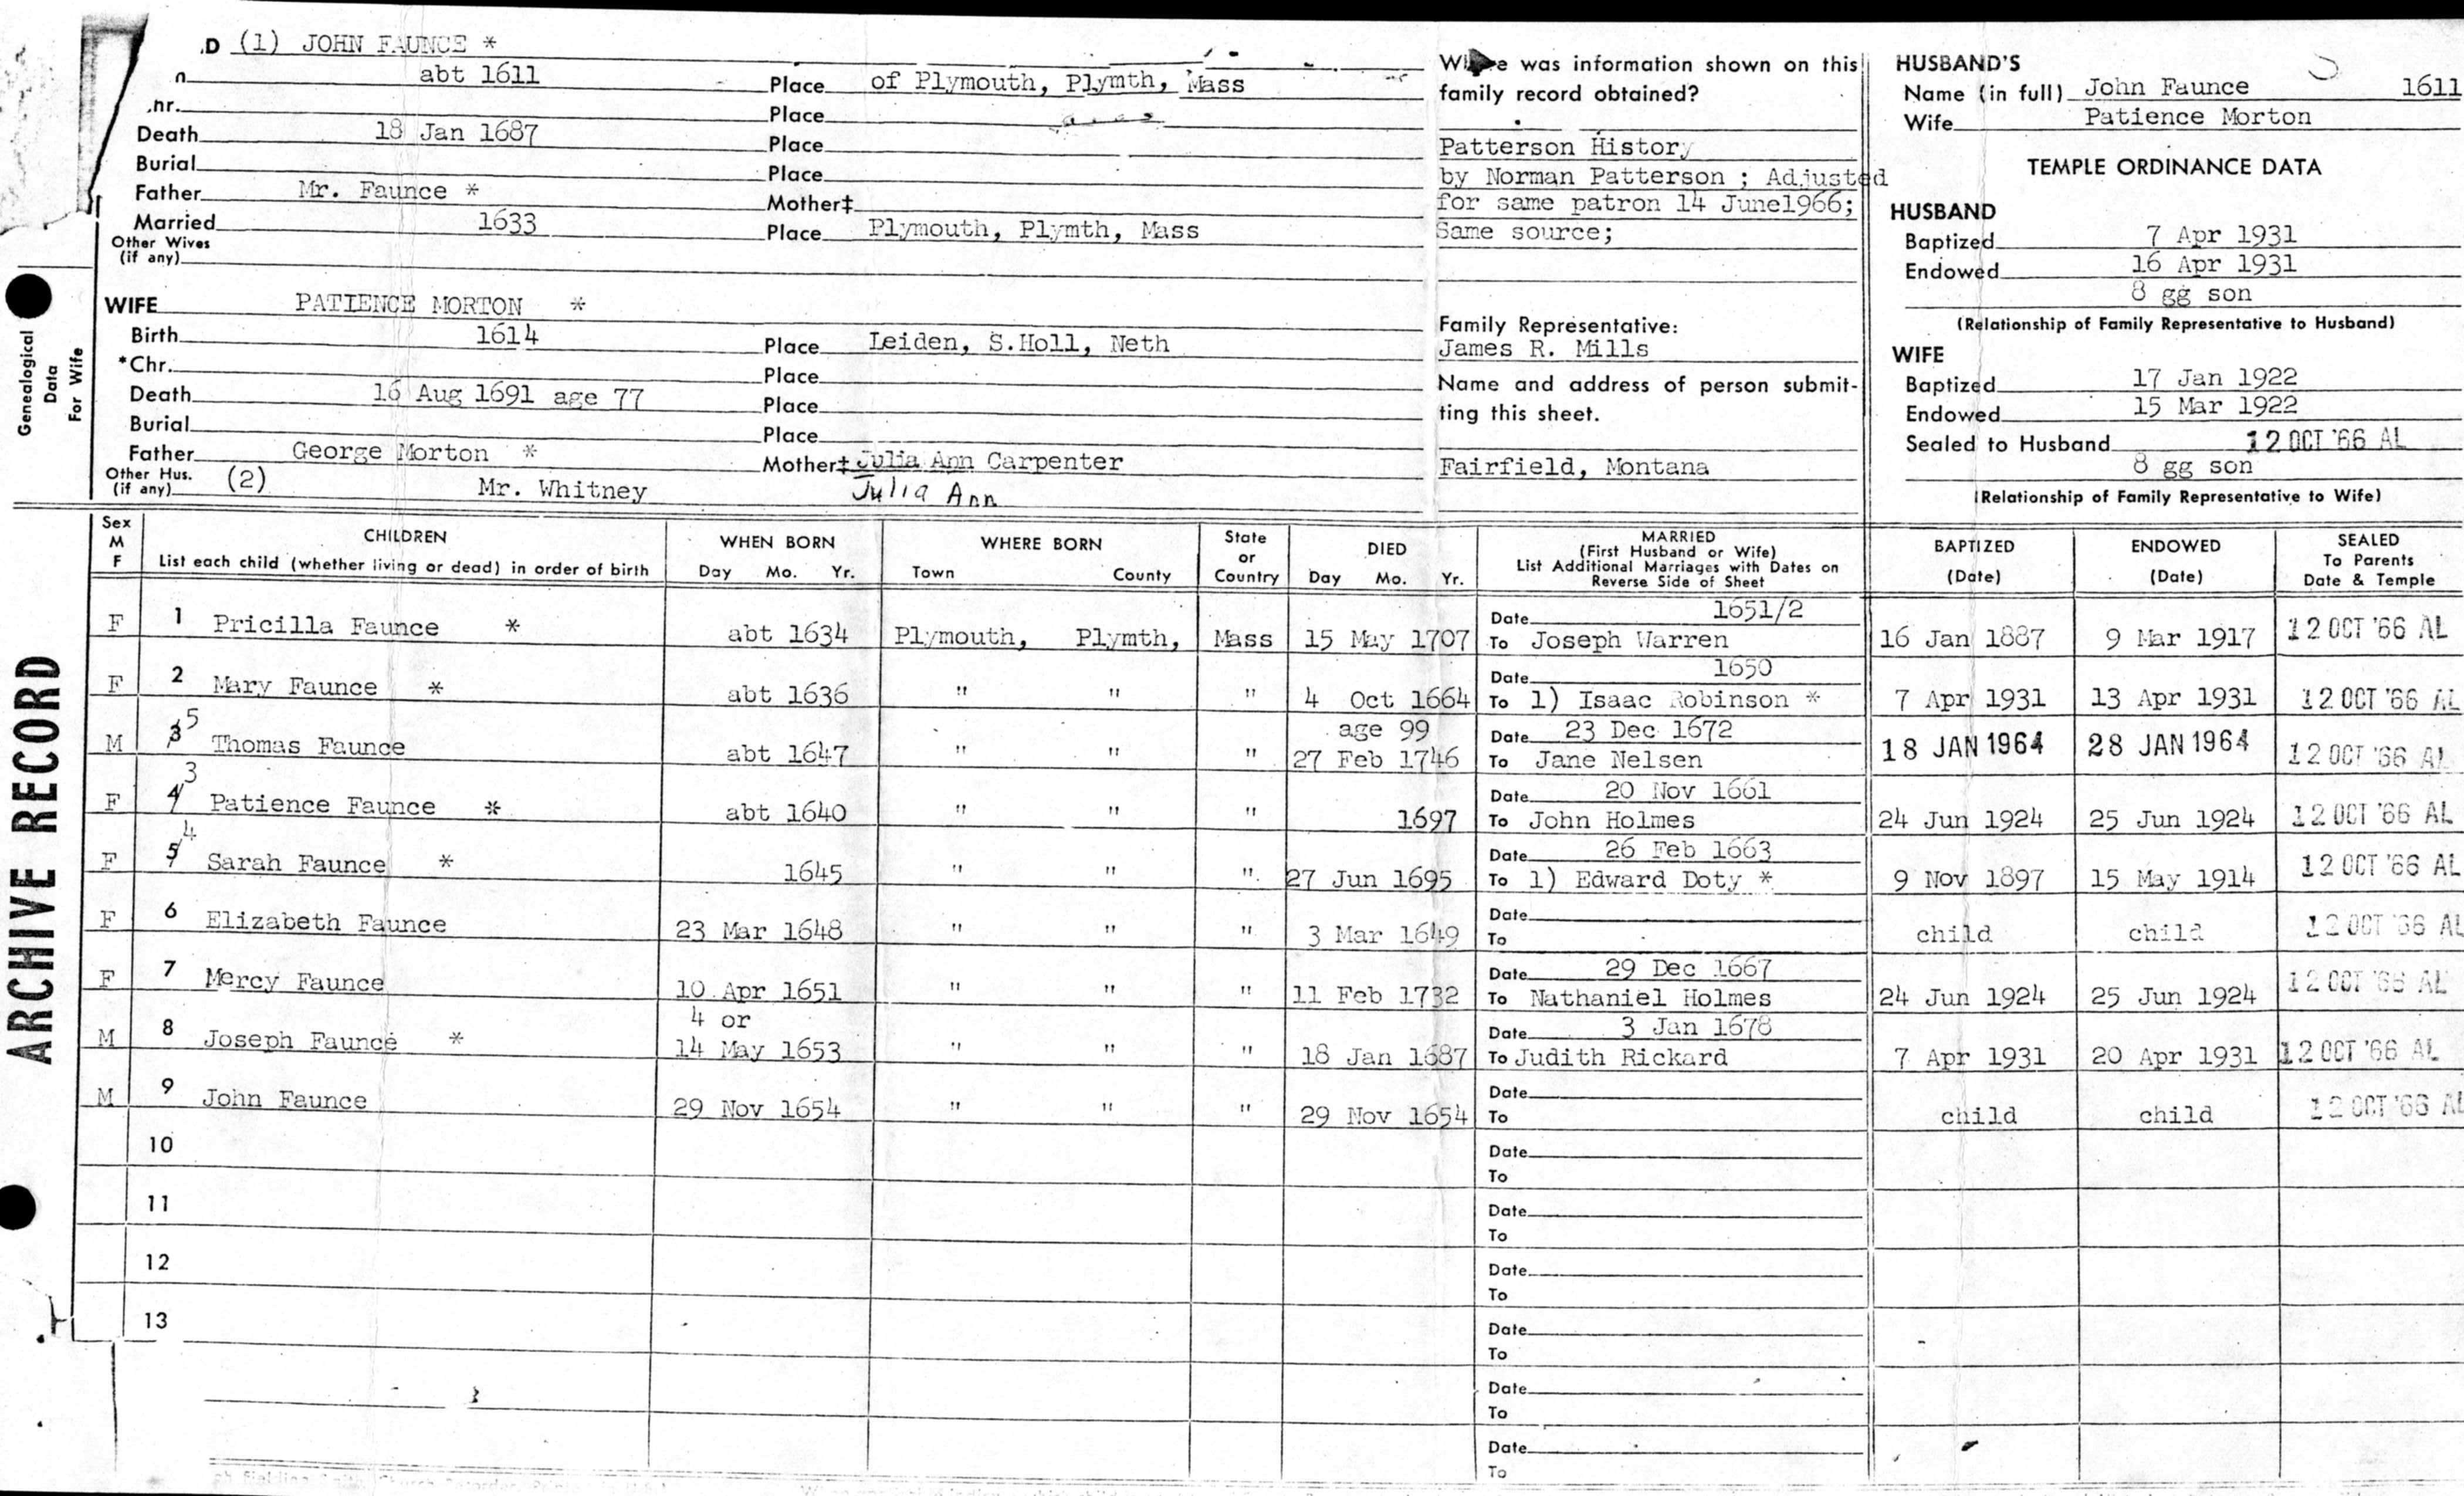 D (1) JOHN FAUNCE *
abt 1611 Place of Plymouth, Plymth, Mass
hr. Place
Death 18 Jan 1687 Place
Burial Place
Father Mr. Faunce * Mother‡
Married 1633 Place Plymouth, Plymth, Mass
Other Wives
(if any)
WIFE PATIENCE MORTON *
Birth 1614 Place Leiden, S.Holl, Neth
*Chr. Place
Death 16 Aug 1691 age 77 Place
Burial Place
Father George Morton * Mother‡ Julia Ann Carpenter
Other Hus.
(if any) (2) Mr. Whitney Julia Ann
Genealogical
Data
For Wife
was information shown on this
family record obtained?
Patterson History
by Norman Patterson ; Adjusted
for same patron 14 June1966;
Same source;
Family Representative:
James R. Mills
Name and address of person submit-
ting this sheet.
Fairfield, Montana
HUSBAND'S
Name (in full) John Faunce 1611
Wife Patience Morton
TEMPLE ORDINANCE DATA
HUSBAND
Baptized 7 Apr 1931
Endowed 16 Apr 1931
8 gg son
(Relationship of Family Representative to Husband)
WIFE
Baptized 17 Jan 1922
Endowed 15 Mar 1922
Sealed to Husband 12 OCT '66 AL
8 gg son
(Relationship of Family Representative to Wife)
ARCHIVE RECORD
Sex
M
F
CHILDREN
List each child (whether living or dead) in order of birth
WHEN BORN
Day Mo. Yr.
WHERE BORN
Town County
State
or
Country
DIED
Day Mo. Yr.
MARRIED
(First Husband or Wife)
List Additional Marriages with Dates on
Reverse Side of Sheet
BAPTIZED
(Date)
ENDOWED
(Date)
SEALED
To Parents
Date & Temple
Date 1651/2
F 1 Pricilla Faunce * abt 1634 Plymouth, Plymth, Mass 15 May 1707 To Joseph Warren 16 Jan 1887 9 Mar 1917 12 OCT '66 AL
Date 1650
F 2 Mary Faunce * abt 1636 " " " 4 Oct 1664 To 1) Isaac Robinson * 7 Apr 1931 13 Apr 1931 12 OCT '66 AL
age 99 Date 23 Dec 1672
M 3 5 Thomas Faunce abt 1647 " " " 27 Feb 1746 To Jane Nelsen 18 JAN 1964 28 JAN 1964 12 OCT '66 AL
Date 20 Nov 1661
F 4 3 Patience Faunce * abt 1640 " " " 1697 To John Holmes 24 Jun 1924 25 Jun 1924 12 OCT '66 AL
Date 26 Feb 1663
F 5 4 Sarah Faunce * 1645 " " " 27 Jun 1695 To 1) Edward Doty * 9 Nov 1897 15 May 1914 12 OCT '66 AL
Date
F 6 Elizabeth Faunce 23 Mar 1648 " " " 3 Mar 1649 To child child 12 OCT '66 AL
Date 29 Dec 1667
F 7 Mercy Faunce 10 Apr 1651 " " " 11 Feb 1732 To Nathaniel Holmes 24 Jun 1924 25 Jun 1924 12 OCT '66 AL
4 or Date 3 Jan 1678
M 8 Joseph Faunce * 14 May 1653 " " " 18 Jan 1687 To Judith Rickard 7 Apr 1931 20 Apr 1931 12 OCT '66 AL
Date
M 9 John Faunce 29 Nov 1654 " " " 29 Nov 1654 To child child 12 OCT '66 AL
10 Date
To
11 Date
To
12 Date
To
13 Date
To
Date
To
Date
To